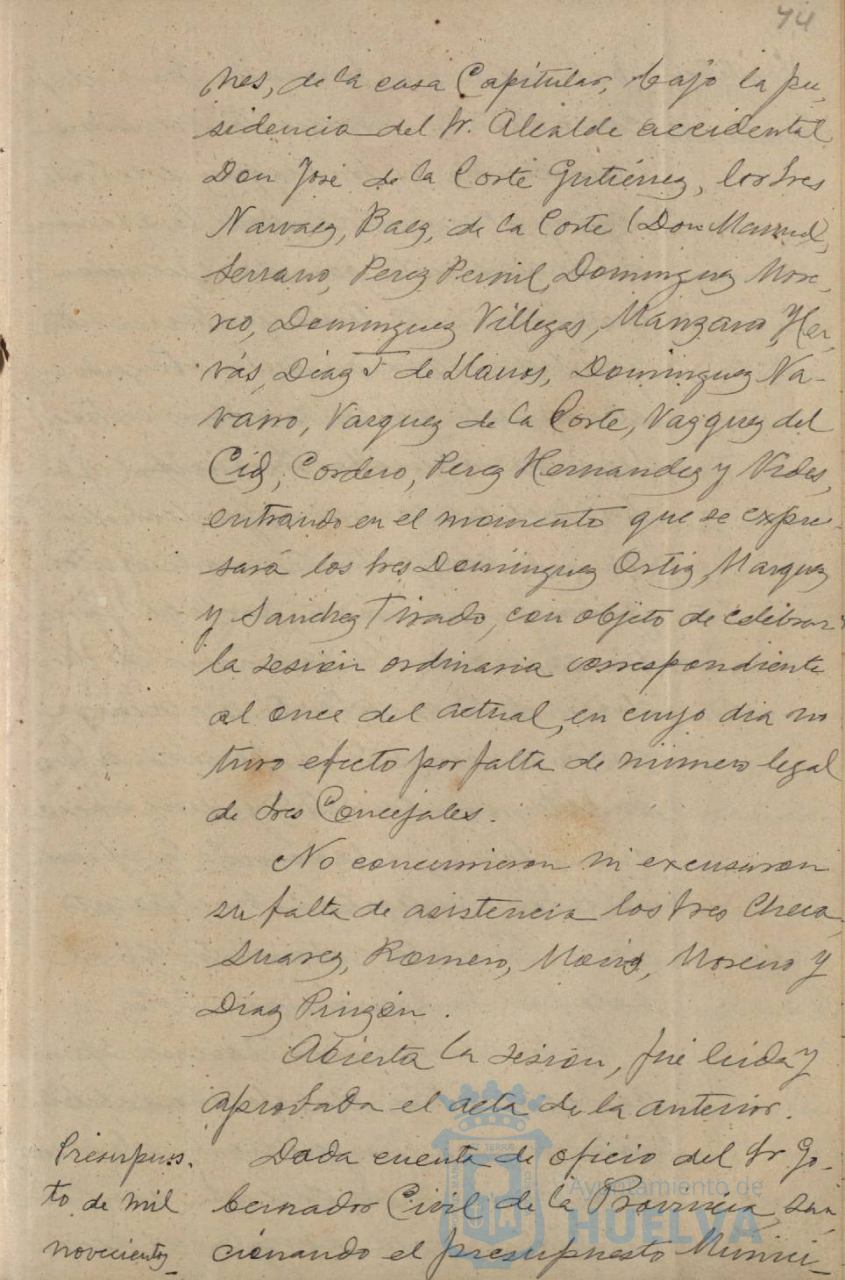 74
nes, de la casa Capitular, bajo la pre-
sidencia del Sr. Alcalde accidental
Don José de la Corte Gutiérrez, los Sres
Narvaez, Baez, de la Corte (Don Manuel,
Serrano, Perez Pernil, Dominguez More-
no, Dominguez Villegas, Manzano, Her-
vás, Diaz F de Llanos, Dominguez Na-
varro, Vazquez de la Corte, Vazquez del
Cid, Cordero, Perez Hernandez y Vides,
entrando en el momento que se expre-
sará los Sres Dominguez Ortiz, Marquez
y Sanchez Tirado, con objeto de celebrar
la sesión ordinaria correspondiente
al once del actual, en cuyo dia no
tuvo efecto por falta de número legal
de Sres Concejales.
No concurrieron ni excusaron
su falta de asistencia los Sres Checa,
Suarez, Romero, Moreno y
Diaz Pinzón.
Abierta la sesión, fué leida y
aprobada el acta de la anterior.
Presupues-
to de mil
novecientos
Dada cuenta de oficio del Sr Go-
bernador Civil de la Provincia, san-
cionando el presupuesto Munici-
Ayuntamiento de
HUELVA